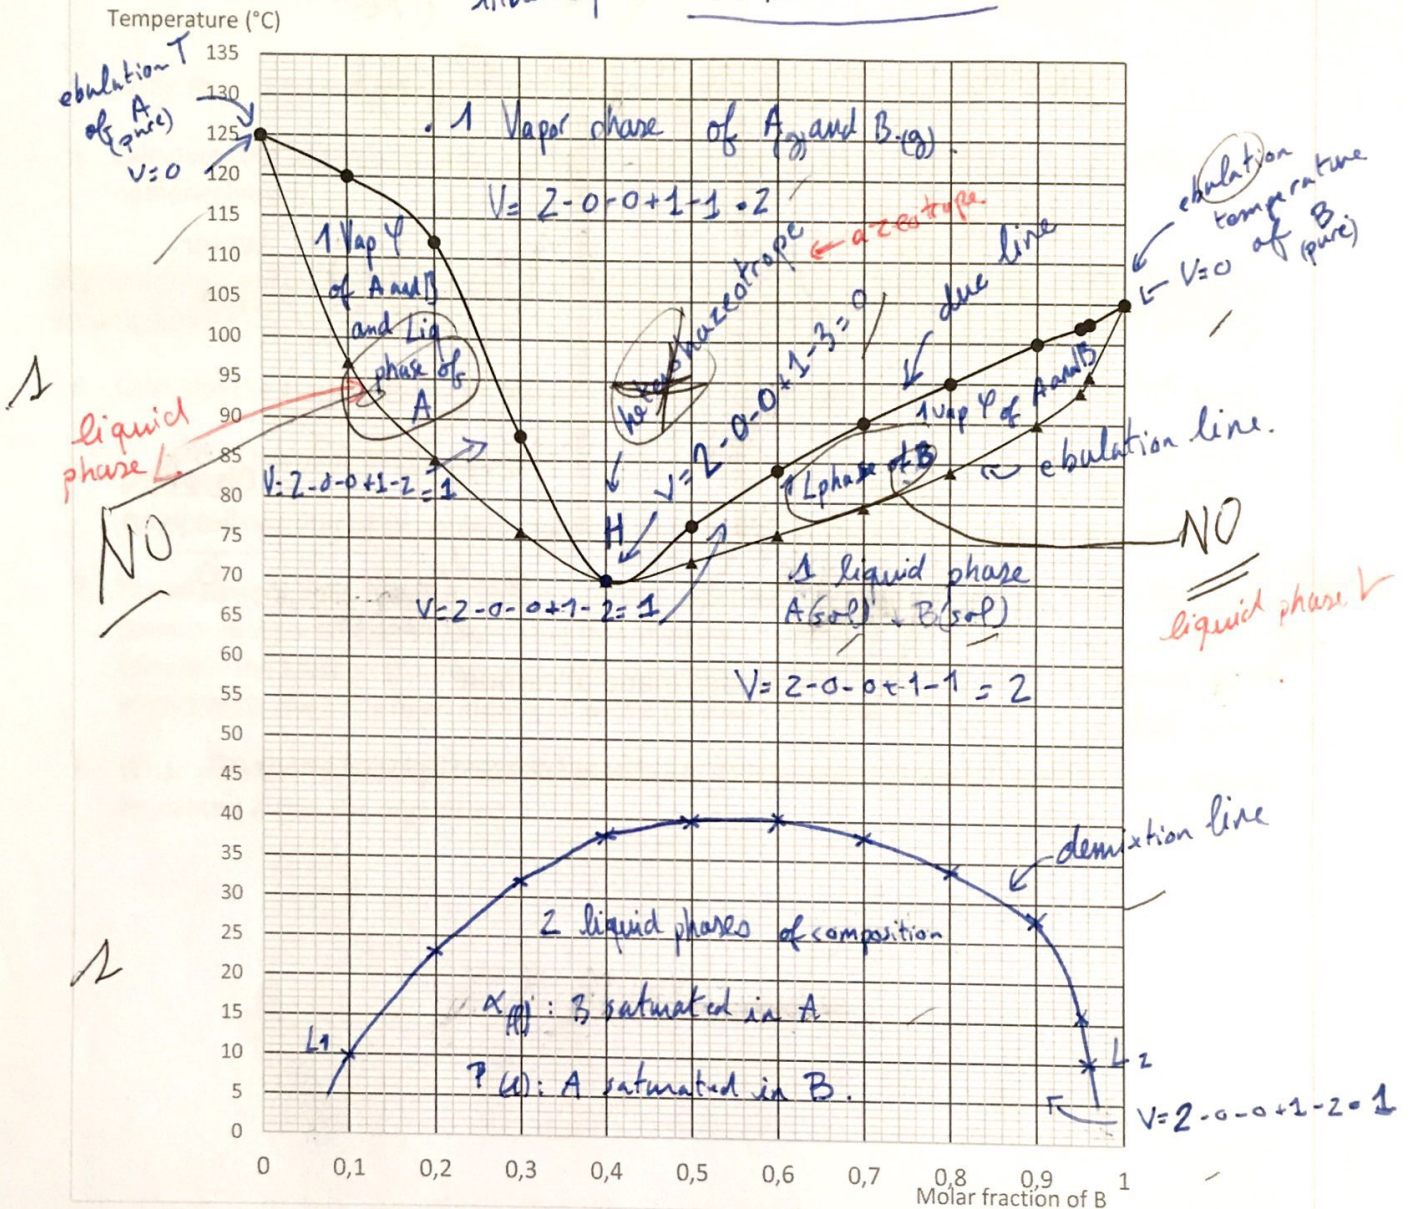 Temperature (°C)
135
130
125
120
115
110
105
100
95
90
85
80
75
70
65
60
55
50
45
40
35
30
25
20
15
10
5
0
0
0,1
0,2
0,3
0,4
0,5
0,6
0,7
0,8
0,9
1
Molar fraction of B
ebulation T
of A
(pure)
V=0
1 Vapor phase of A(g) and B(g)
V= 2-0-0+1-1 = 2
1 Vap φ
of A and B
and Liq
phase of
A
liquid
phase L
NO
V=2-0-0+1-2=1
heterohazeotrope
← azeotrope
V=2-0-0+1-3=0
H
due line
ebulation
temperature
of B
(pure)
V=0
1 vap φ of A and B
1 Lphase of B
ebulation line.
NO
liquid phase L
V=2-0-0+1-2=1
1 liquid phase
A(sol) + B(sol)
V= 2-0-0+1-1 = 2
demixtion line
2 liquid phases of composition
α(l): B saturated in A
(l): A saturated in B.
L1
L2
V=2-0-0+1-2=1
1
1